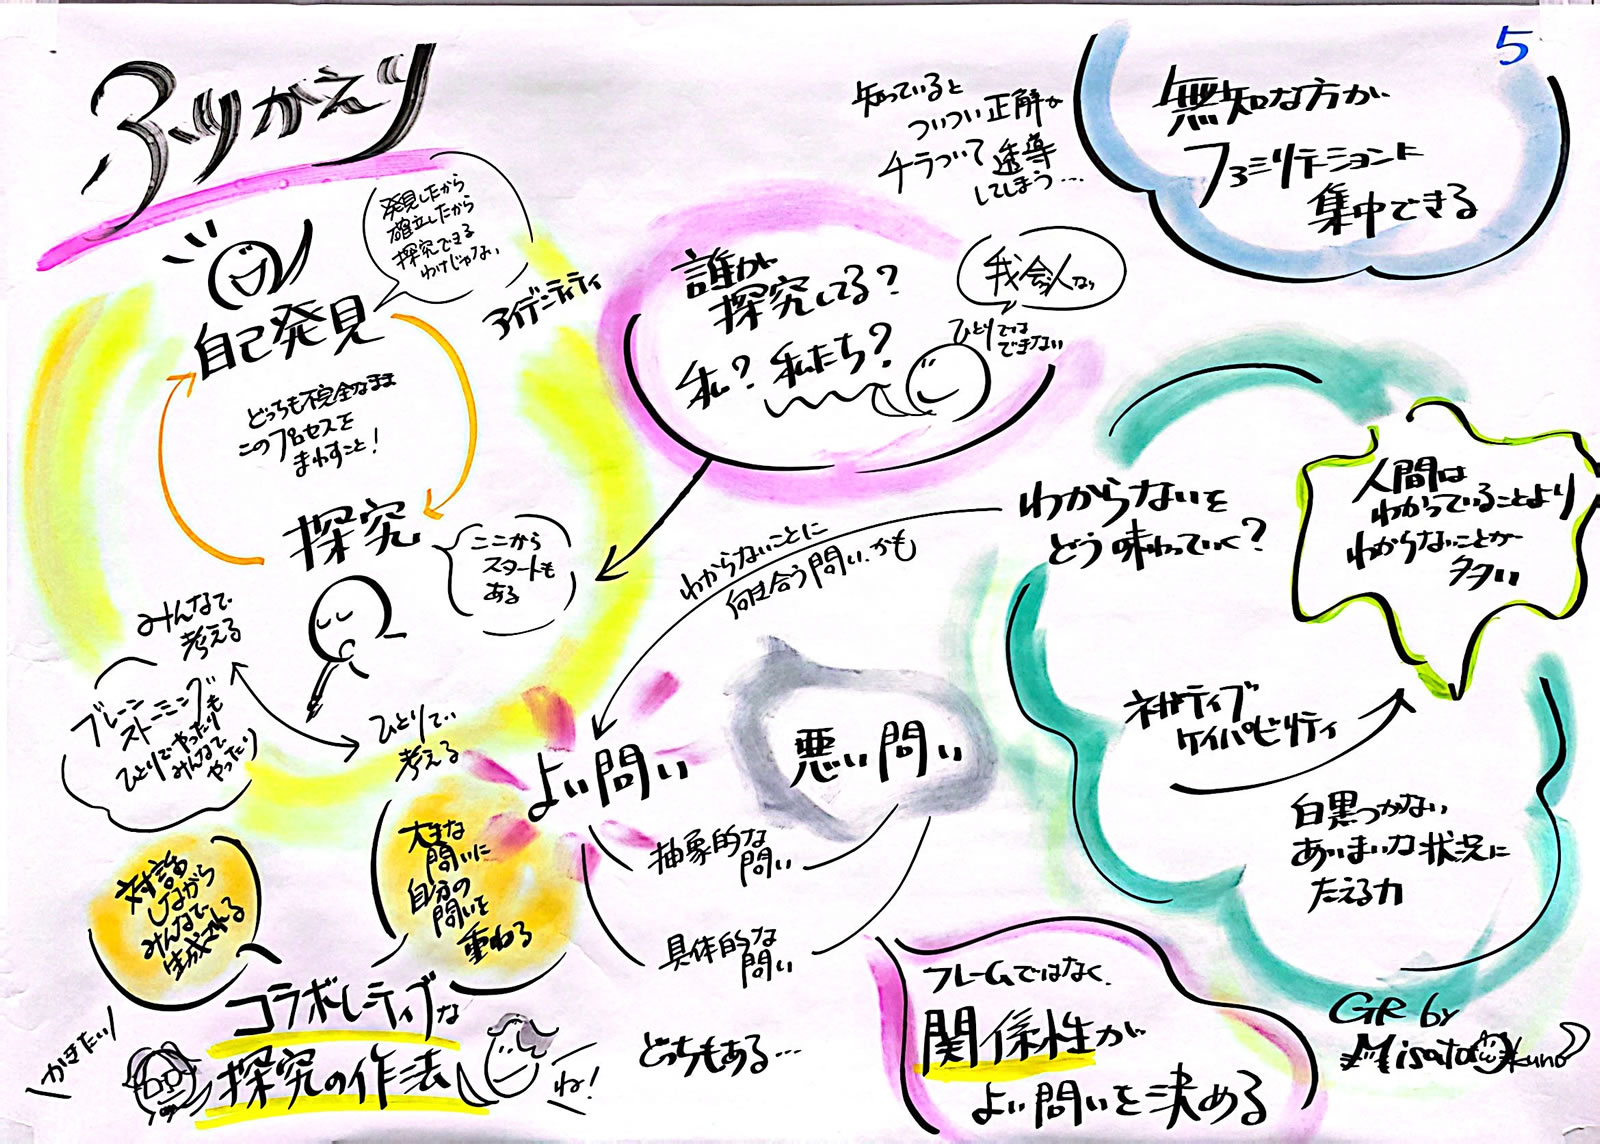 5
ふりかえり
発見したから
確立したから
探究できる
わけじゃない
自己発見
アイデンティティ
どっちも不完全なまま
このプロセスを
まわすこと!
探究
ここから
スタートも
ある
みんなで
考える
ブレーン
ストーミング
ひとりでやったりも
みんなで
やったり
ひとりで
考える
知っていると
ついつい正解が
チラついて誘導
してしまう…
無知な方が
ファシリテーションに
集中できる
誰が
探究してる?
私? 私たち?
ひとりでは
できない
わからないを
どう味わっていく?
わからないことに
向き合う問い.かも
人間は
わかっていることより
わからないことが
多い
ネガティブ
ケイパビリティ
白黒つかない
あいまいな状況に
たえる力
よい問い
悪い問い
抽象的な
問い
具体的な
問い
どっちもある…
大きな
問いに
自分の
問いを
重ねる
対話
しながら
みんなで
生成される
コラボレーティブな
探究の作法
かきたい!
ね!
フレームではなく、
関係性が
よい問いを決める
GR by
Misato Okuno